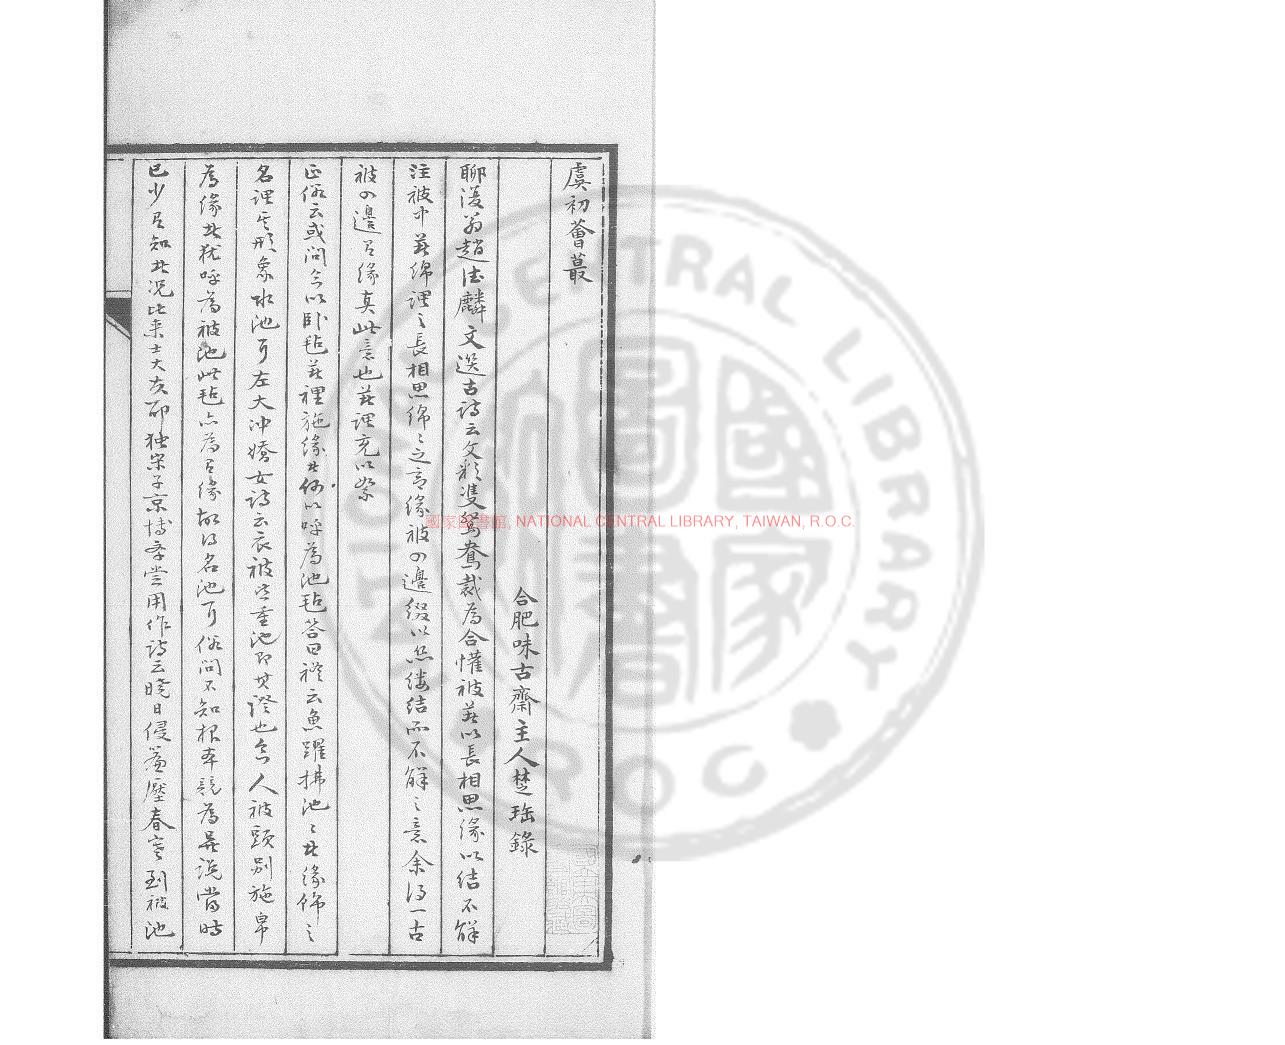 虞初薈蕞
合肥味古齋主人楚瑤錄
聊復翁趙德麟文選古詩云文彩雙鴛鴦裁為合懽被著以長相思緣以結不解
注被中著綿謂之長相思綿綿之意緣被四邊綴以絲縷結而不解之意余得一古
被四邊有緣真此意也著謂充以絮
正俗云或問今以卧毡著裡施緣其何以呼為池毡答曰禮云魚躍拂池池其緣飾之
名謂其形象水池耳左太冲嬌女詩云衣被皆重池即其證也今人被頭別施帛
為緣其猶呼為被池此毡亦為有緣故得名池耳俗問不知根本競為異說當時
已少有知其況比来士大夫耶独宋子京博学嘗用作詩云曉日侵簾壓春寒到被池
國家圖書館, NATIONAL CENTRAL LIBRARY, TAIWAN, R.O.C.